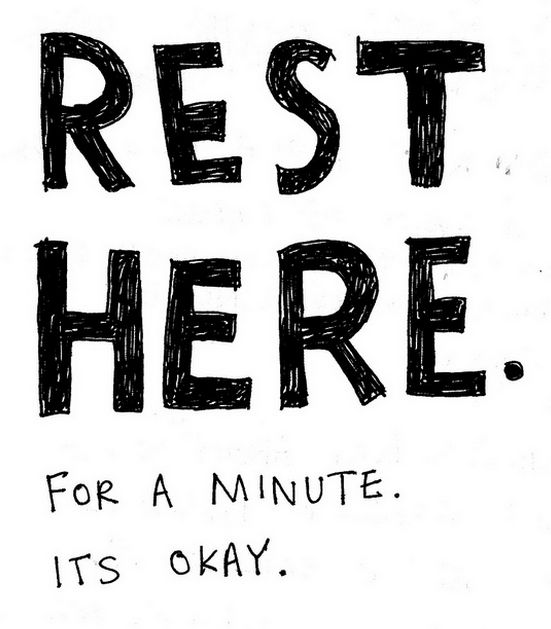 REST
HERE.
FOR A MINUTE.
ITS OKAY.